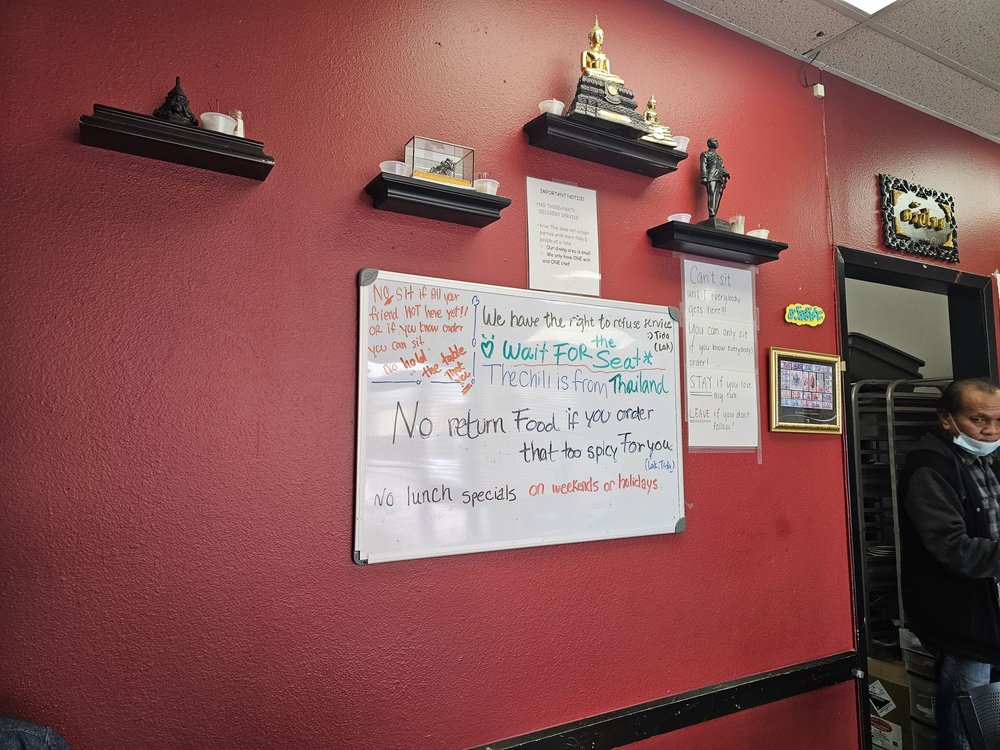 IMPORTANT NOTICE!
-NO THIRD-PARTY
DELIVERY SERVICE
parties with more than
people at a time.
Our dining area is small
We only have ONE wok
and ONE chef
No sit if All your
friend NOT here yet!!
OR if you know order
you can sit
No hold the table
We have the right to refuse service
:) Tida
(Lek)
Wait FOR the Seat*
The chili is from Thailand
No return Food if you order
that too spicy For you
(Lek, Tida)
No lunch specials on weekends or holidays
Can't sit
until everybody
gets here!!!
You can only sit
if you know everybody's
order!
STAY if you love
my rule,
LEAVE if you don't
follow!